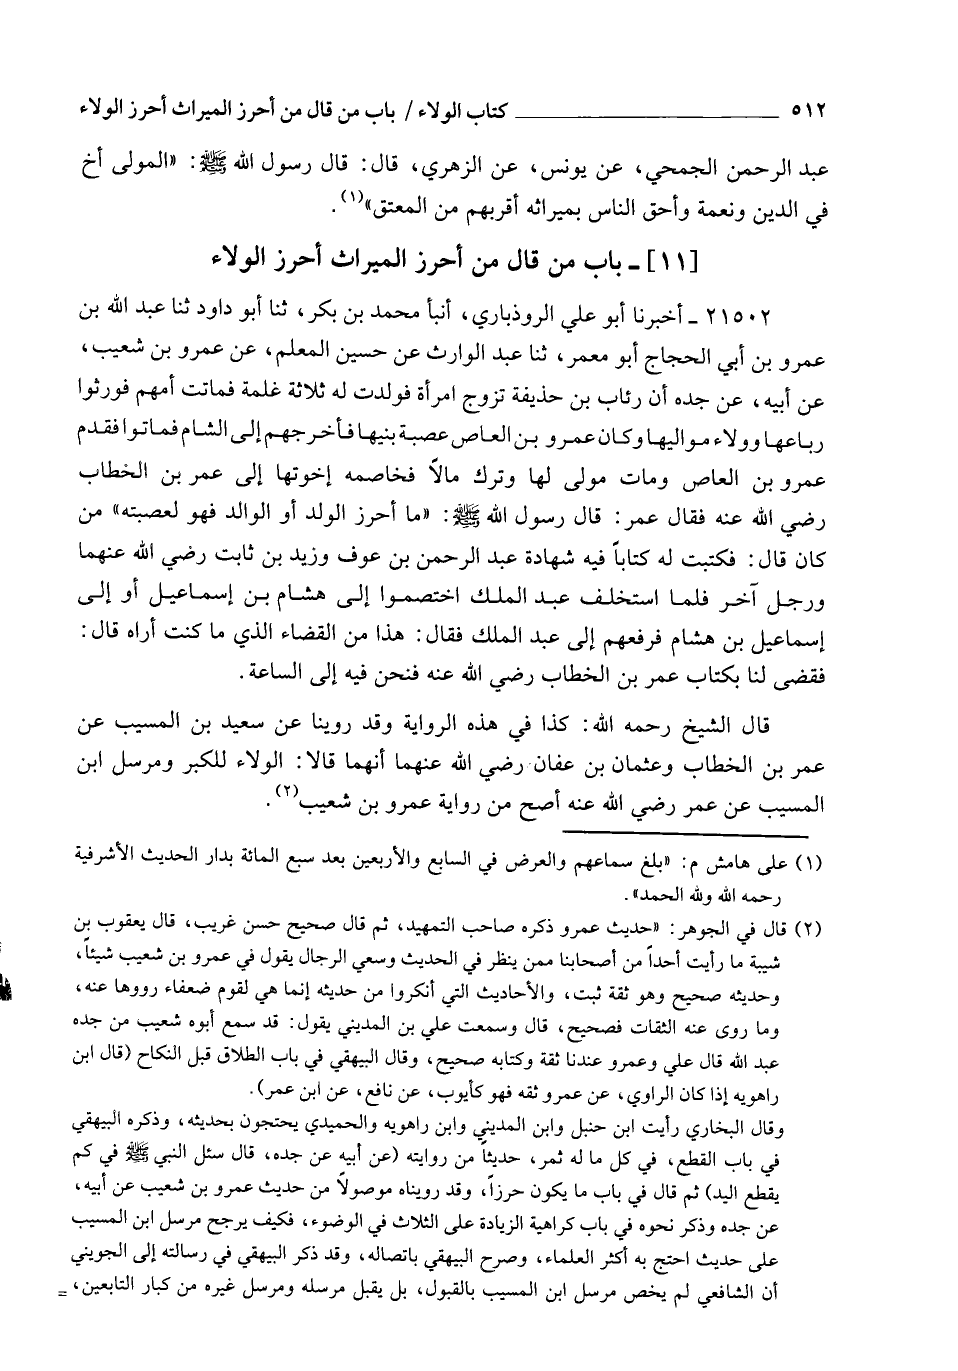 ٥١٢ ــــــــــــــــــــ كتاب الولاء / باب من قال من أحرز الميراث أحرز الولاء
عبد الرحمن الجمحي، عن يونس، عن الزهري، قال: قال رسول الله ﷺ: «المولى أخ
في الدين ونعمة وأحق الناس بميراثه أقربهم من المعتق»(١).
[١١] ـ باب من قال من أحرز الميراث أحرز الولاء
٢١٥٠٢ ـ أخبرنا أبو علي الروذباري، أنبأ محمد بن بكر، ثنا أبو داود ثنا عبد الله بن
عمرو بن أبي الحجاج أبو معمر، ثنا عبد الوارث عن حسين المعلم، عن عمرو بن شعيب،
عن أبيه، عن جده أن رئاب بن حذيفة تزوج امرأة فولدت له ثلاثة غلمة فماتت أمهم فورثوا
رباعها وولاء مواليها وكان عمرو بن العاص عصبة بنيها فأخرجهم إلى الشام فماتوا فقدم
عمرو بن العاص ومات مولى لها وترك مالاً فخاصمه إخوتها إلى عمر بن الخطاب
رضي الله عنه فقال عمر: قال رسول الله ﷺ: «ما أحرز الولد أو الوالد فهو لعصبته» من
كان قال: فكتبت له كتاباً فيه شهادة عبد الرحمن بن عوف وزيد بن ثابت رضي الله عنهما
ورجل آخر فلما استخلف عبد الملك اختصموا إلى هشام بن إسماعيل أو إلى
إسماعيل بن هشام فرفعهم إلى عبد الملك فقال: هذا من القضاء الذي ما كنت أراه قال:
فقضى لنا بكتاب عمر بن الخطاب رضي الله عنه فنحن فيه إلى الساعة.
قال الشيخ رحمه الله: كذا في هذه الرواية وقد روينا عن سعيد بن المسيب عن
عمر بن الخطاب وعثمان بن عفان رضي الله عنهما أنهما قالا: الولاء للكبر ومرسل ابن
المسيب عن عمر رضي الله عنه أصح من رواية عمرو بن شعيب(٢).
(١) على هامش م: «بلغ سماعهم والعرض في السابع والأربعين بعد سبع المائة بدار الحديث الأشرفية
رحمه الله ولله الحمد».
(٢) قال في الجوهر: «حديث عمرو ذكره صاحب التمهيد، ثم قال صحيح حسن غريب، قال يعقوب بن
شيبة ما رأيت أحداً من أصحابنا ممن ينظر في الحديث وسعي الرجال يقول في عمرو بن شعيب شيئاً،
وحديثه صحيح وهو ثقة ثبت، والأحاديث التي أنكروا من حديثه إنما هي لقوم ضعفاء رووها عنه،
وما روى عنه الثقات فصحيح، قال وسمعت علي بن المديني يقول: قد سمع أبوه شعيب من جده
عبد الله قال علي وعمرو عندنا ثقة وكتابه صحيح، وقال البيهقي في باب الطلاق قبل النكاح (قال ابن
راهويه إذا كان الراوي، عن عمرو ثقه فهو كأيوب، عن نافع، عن ابن عمر).
وقال البخاري رأيت ابن حنبل وابن المديني وابن راهويه والحميدي يحتجون بحديثه، وذكره البيهقي
في باب القطع، في كل ما له ثمر، حديثاً من روايته (عن أبيه عن جده، قال سئل النبي ﷺ في كم
يقطع اليد) ثم قال في باب ما يكون حرزاً، وقد رويناه موصولاً من حديث عمرو بن شعيب عن أبيه،
عن جده وذكر نحوه في باب كراهية الزيادة على الثلاث في الوضوء، فكيف يرجح مرسل ابن المسيب
على حديث احتج به أكثر العلماء، وصرح البيهقي باتصاله، وقد ذكر البيهقي في رسالته إلى الجويني
أن الشافعي لم يخص مرسل ابن المسيب بالقبول، بل يقبل مرسله ومرسل غيره من كبار التابعين، =